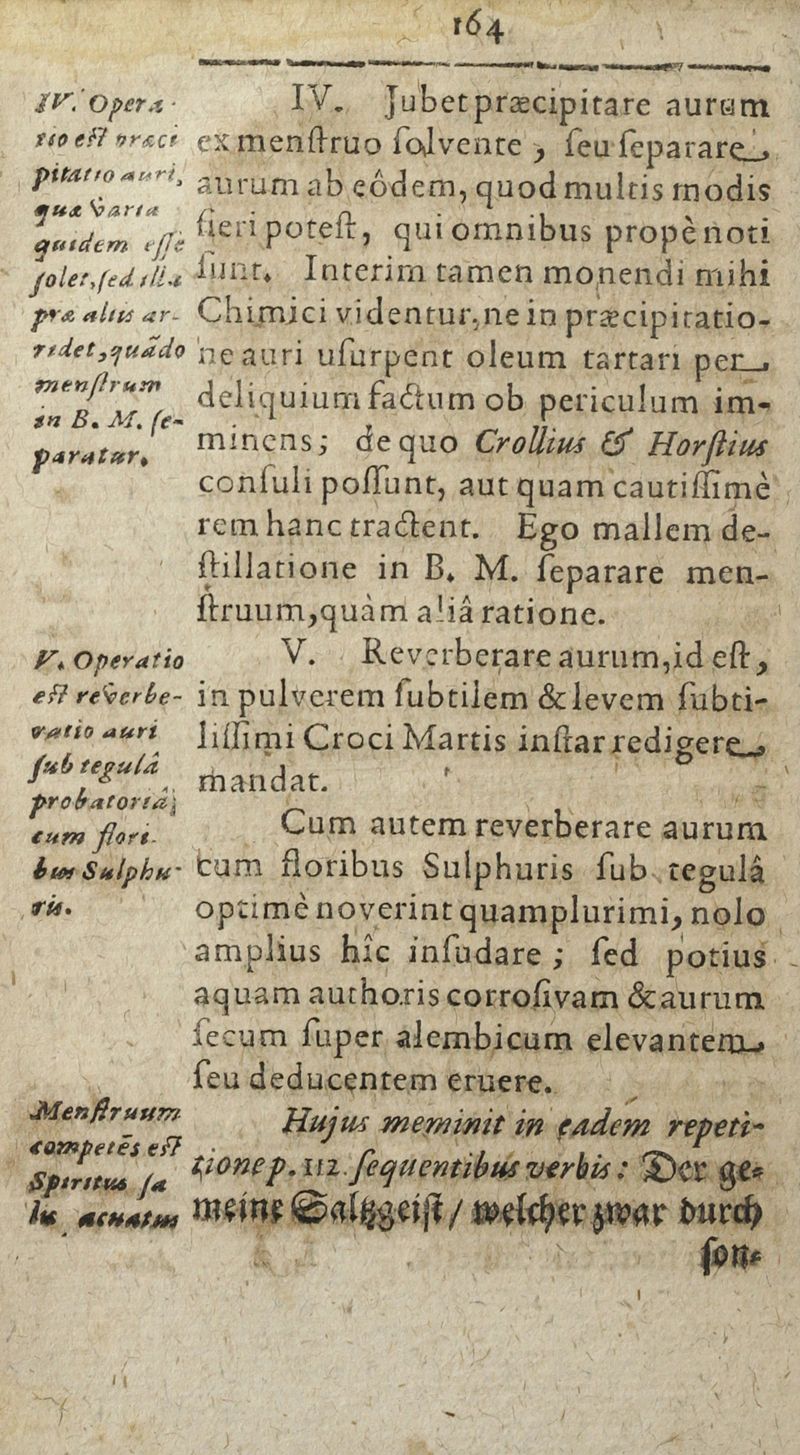 164
IV. Opera-
tio est præci
pitatio auri,
quæ varia
quidem esse
solet, sed illa
præ aliis ar-
ridet, quādo
menstruum
in B. M. se-
paratur.
IV. Jubet præcipitare aurum
ex menstruo solvente, seu separare
aurum ab eôdem, quod multis modis
fieri potest, qui omnibus propè noti
sunt. Interim tamen monendi mihi
Chimici videntur, ne in præcipitatio-
ne auri usurpent oleum tartari per
deliquium factum ob periculum im-
minens; de quo Crollius & Horstius
consuli possunt, aut quam cautissimè
rem hanc tractent. Ego mallem de-
stillatione in B. M. separare men-
struum, quàm aliâ ratione.
V. Operatio
est reverbe-
ratio auri
sub tegulâ
probatoriâ;
cum flori-
bus Sulphu-
ris.
V. Reverberare aurum, id est,
in pulverem subtilem & levem subti-
lissimi Croci Martis instar redigere
mandat.
Cum autem reverberare aurum
cum floribus Sulphuris sub tegulâ
optimè noverint quamplurimi, nolo
amplius hîc insudare; sed potius
aquam authoris corrosivam & aurum
secum super alembicum elevantem
seu deducentem eruere.
Menstruum
competēs est
Spiritus sa
lis acuatus
Hujus meminit in eadem repeti-
tione p. 112. sequentibus verbis: Der ge-
meine Saltzgeist / welcher zwar durch
son-